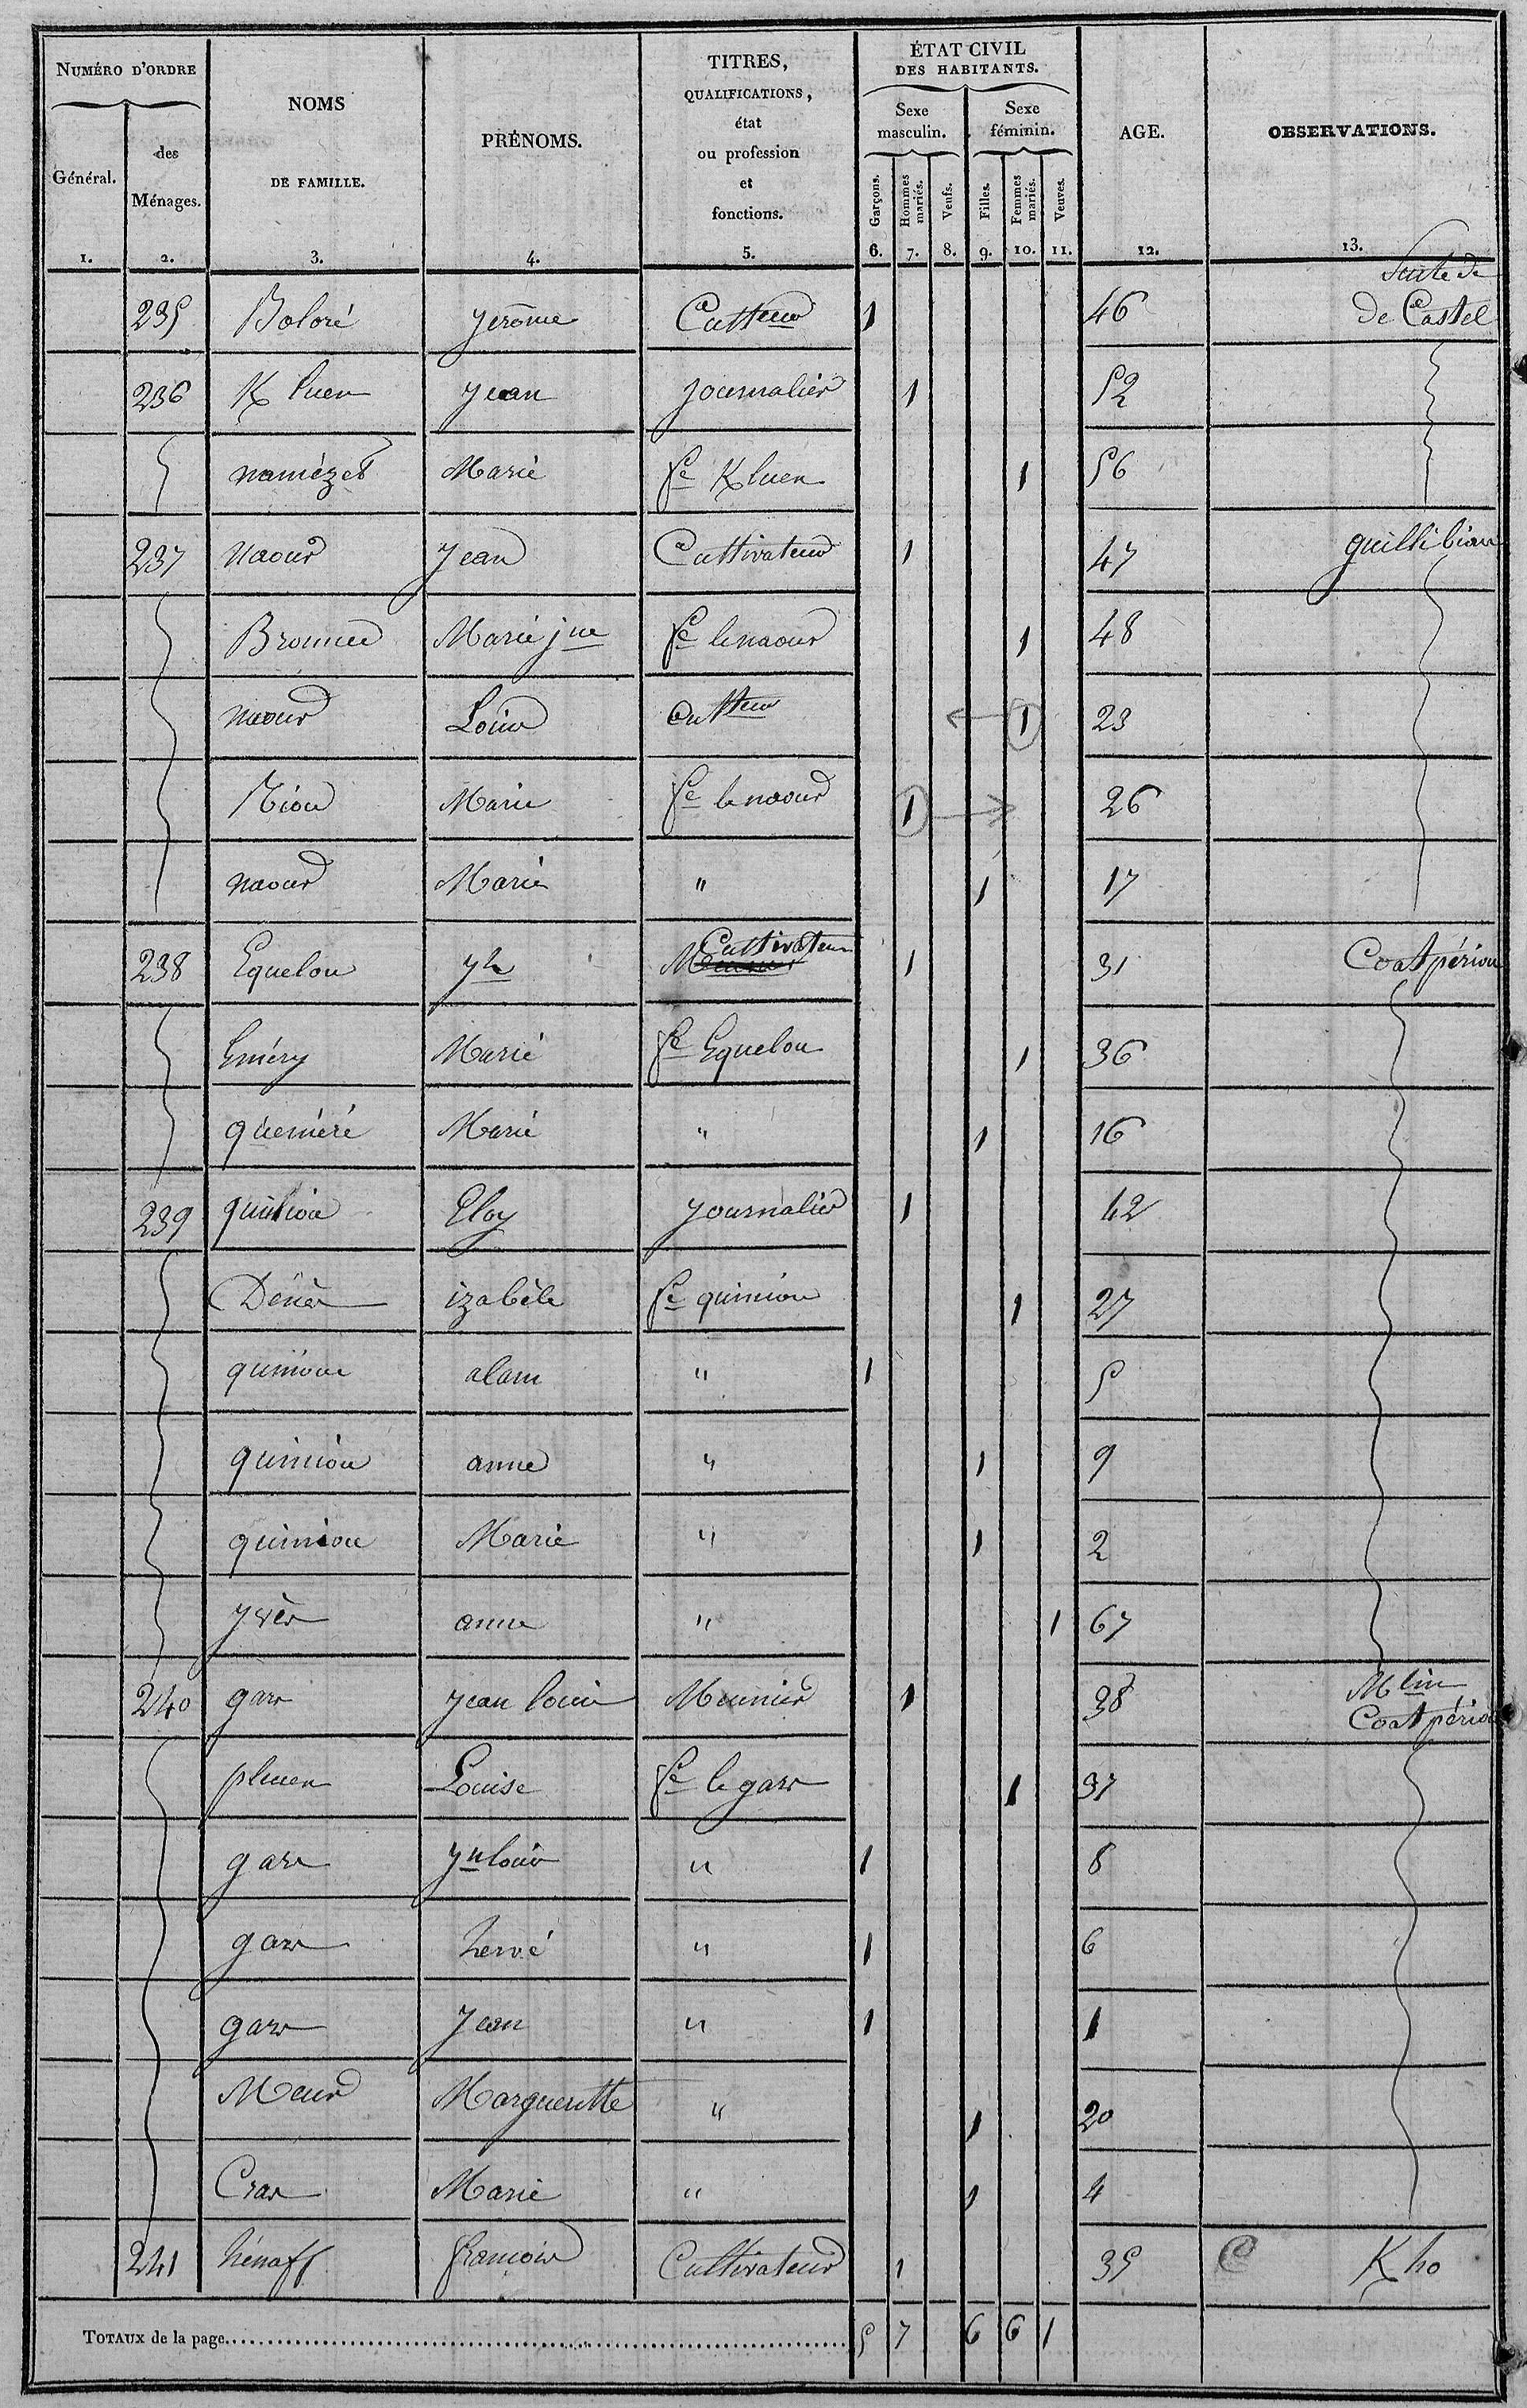 NUMÉRO D'ORDRE NOMS DE FAMILLE. PRÉNOMS. TITRES, QUALIFICATIONS, état ou profession et fonctions. ÉTAT CIVIL DES HABITANTS. AGE. OBSERVATIONS.
Général. des Ménages. Sexe masculin. Sexe féminin.
Garçons. Hommes mariés. Veufs. Filles. Femmes mariés. Veuves.
1. 2. 3. 4. 5. 6. 7. 8. 9. 10. 11. 12. 13.
Suite de
235 Boloré Jerôme Cultteur 1 46 de Castel
236 K luen Jean Journalier 1 52
namézet Marie fe K luen 1 56
237 Naour Jean Cultivateur 1 47 quilli bian
Bronnec Marie jne fe lenaour 1 48
naour Louis Cultteur 1 23
Riou Marie fe le naour 1 26
naour Marie " 1 17
238 Equelou yh Cultivateur 1 31 Coat périou
Eméry Marie fe Equelou 1 36
quéméré Marie " 1 16
239 quiniou Eloy Journalier 1 42
Dénès izabèle fe quiniou 1 27
quiniou alain " 1 5
quiniou anne " 1 9
quiniou Marie " 1 2
yvès anne " 1 67
240 gars Jean louis Meunier 1 38 Mlin Coat périou
pluen Louise fe le gars 1 37
gars Jn louis " 1 8
gars hervé " 1 6
gars Jean " 1 1
Meur Margueritte " 1 20
Cras Marie " 1 4
241 hénaff françois Cultivateur 1 35 K ho
TOTAUX de la page 5 7 6 6 1